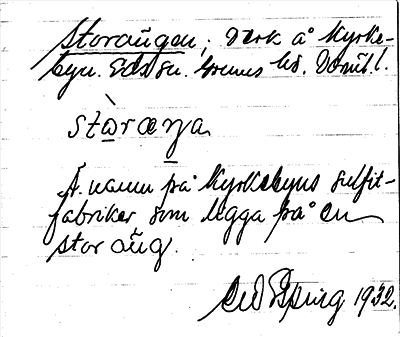 Storängen, verk å Kyrke-
byn. Eds sn. Grums hd. Värml.
stòraŋa
Ä. namn på Kyrkebyns sulfit-
fabriker som ligga på en
stor äng.
1932.